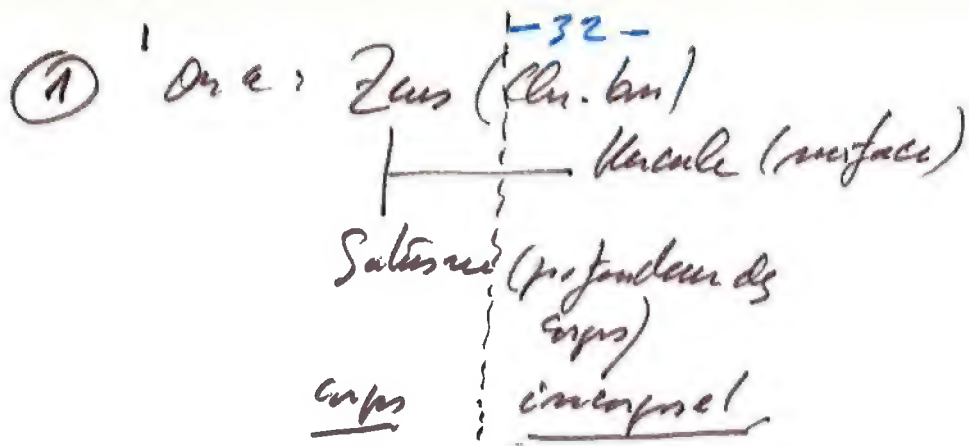 - 32 -
① On a : Zeus
Hercule (surface)
Saturne (profondeur des
corps)
corps incorporel